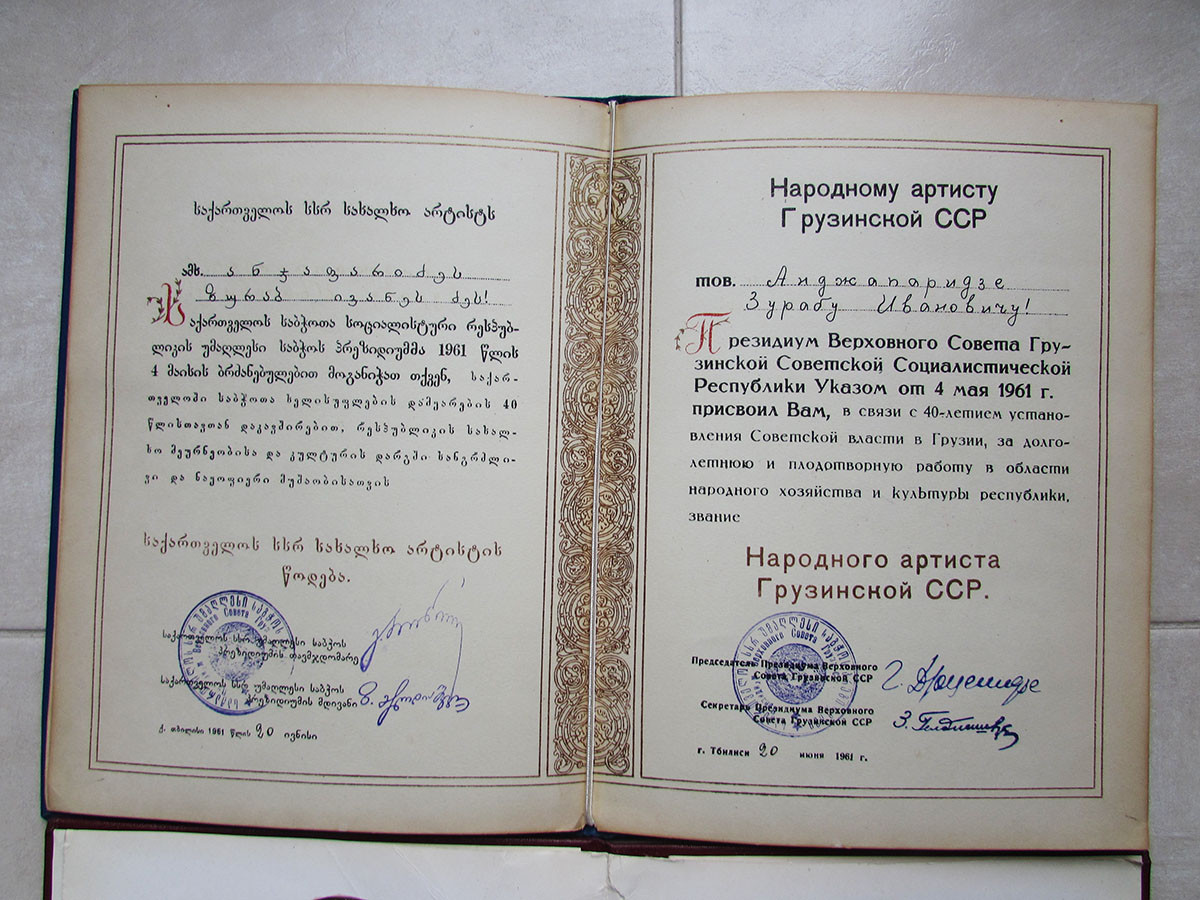 საქართველოს სსრ სახალხო არტისტს
ამხ. ანჯაფარიძეს
ზურაბ ივანეს ძეს!
საქართველოს საბჭოთა სოციალისტური რესპუბ-
ლიკის უმაღლესი საბჭოს პრეზიდიუმმა 1961 წლის
4 მაისის ბრძანებულებით მოგანიჭათ თქვენ, საქარ-
თველოში საბჭოთა ხელისუფლების დამყარების 40
წლისთავთან დაკავშირებით, რესპუბლიკის სახალ-
ხო მეურნეობისა და კულტურის დარგში ხანგრძლი-
ვი და ნაყოფიერი მუშაობისათვის
საქართველოს სსრ სახალხო არტისტის
წოდება.
საქართველოს სსრ უმაღლესი საბჭოს
პრეზიდიუმის თავმჯდომარე
საქართველოს სსრ უმაღლესი საბჭოს
პრეზიდიუმის მდივანი
ქ. თბილისი 1961 წლის 20 ივნისი
Народному артисту
Грузинской ССР
тов. Анджапаридзе
Зурабу Ивановичу!
Президиум Верховного Совета Гру-
зинской Советской Социалистической
Республики Указом от 4 мая 1961 г.
присвоил Вам, в связи с 40-летием устано-
вления Советской власти в Грузии, за долго-
летнюю и плодотворную работу в области
народного хозяйства и культуры республики,
звание
Народного артиста
Грузинской ССР.
Председатель Президиума Верховного
Совета Грузинской ССР Г. Дзоценидзе
Секретарь Президиума Верховного
Совета Грузинской ССР
г. Тбилиси 20 июня 1961 г.